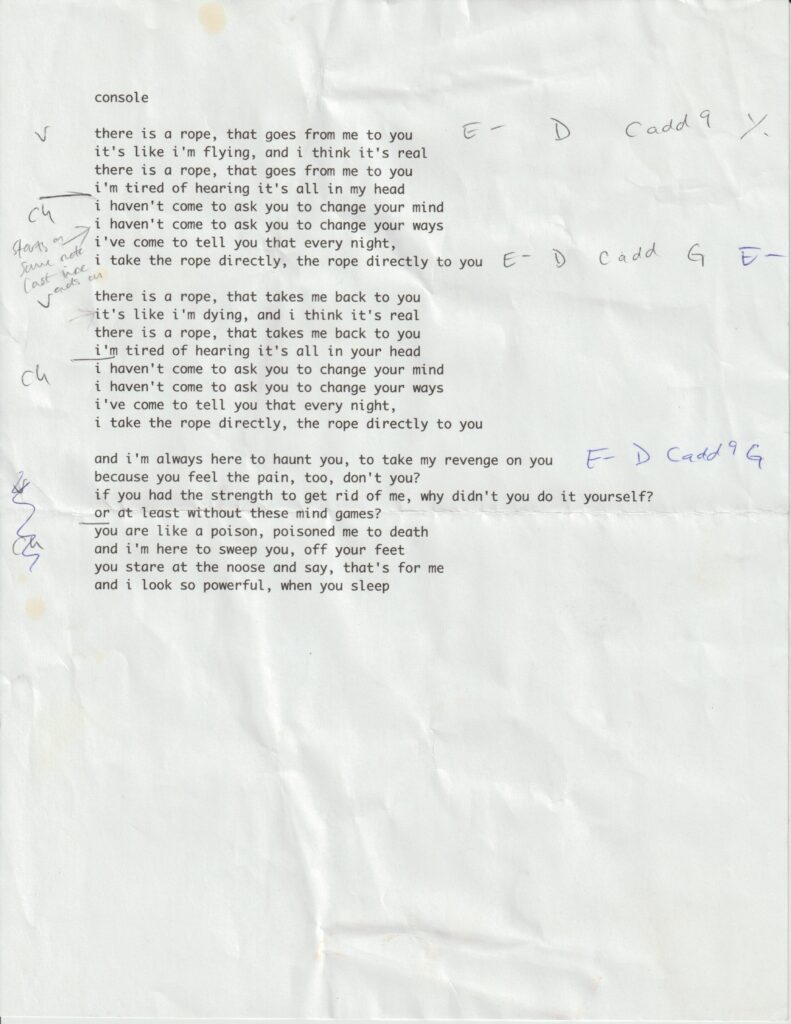 console
v there is a rope, that goes from me to you E- D Cadd9 ٪
it's like i'm flying, and i think it's real
there is a rope, that goes from me to you
i'm tired of hearing it's all in my head
ch i haven't come to ask you to change your mind
i haven't come to ask you to change your ways
starts on
same note
last line
ends on
i've come to tell you that every night,
i take the rope directly, the rope directly to you E- D Cadd G E-
v there is a rope, that takes me back to you
it's like i'm dying, and i think it's real
there is a rope, that takes me back to you
i'm tired of hearing it's all in your head
ch i haven't come to ask you to change your mind
i haven't come to ask you to change your ways
i've come to tell you that every night,
i take the rope directly, the rope directly to you
and i'm always here to haunt you, to take my revenge on you E- D Cadd9 G
because you feel the pain, too, don't you?
if you had the strength to get rid of me, why didn't you do it yourself?
or at least without these mind games?
ch you are like a poison, poisoned me to death
and i'm here to sweep you, off your feet
you stare at the noose and say, that's for me
and i look so powerful, when you sleep